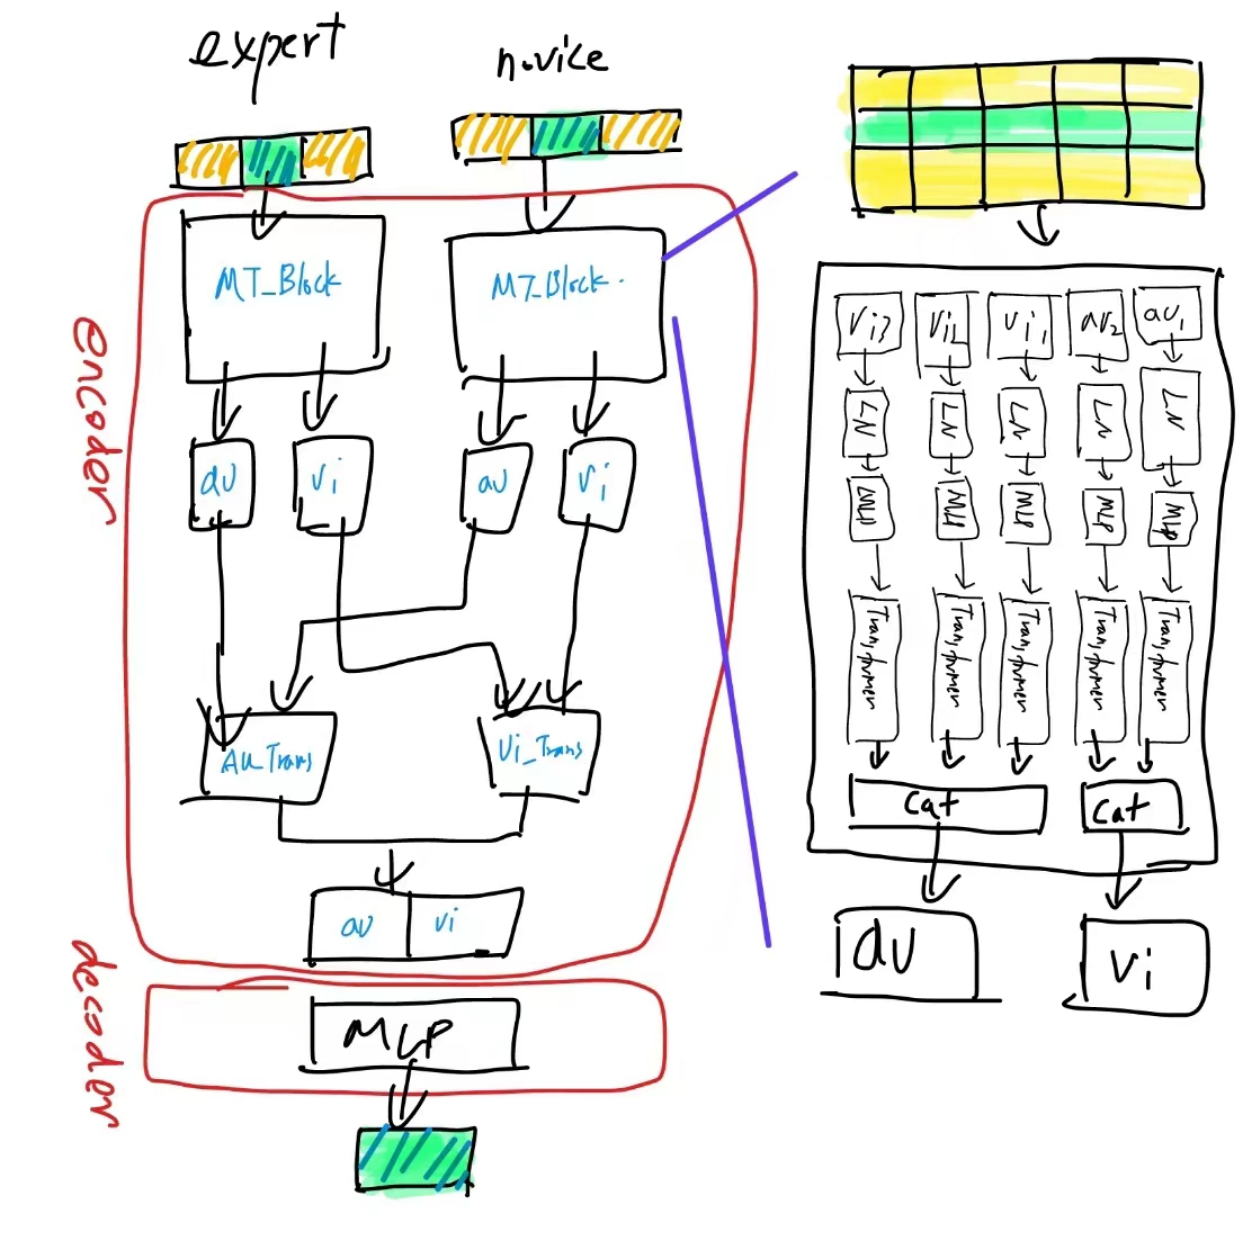 expert
novice
MT_Block
MT_Block.
encoder
au
vi
au
vi
Au_Trans
Vi_Trans
au
vi
decoder
MLP
vi3
vi2
vi1
au2
au1
LN
LN
LN
LN
LN
MLP
MLP
MLP
MLP
MLP
Transformer
Transformer
Transformer
Transformer
Transformer
cat
cat
au
vi